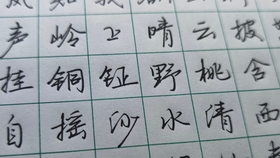 声岭上晴云披
挂铜钲野桃含
自摇沙水清西